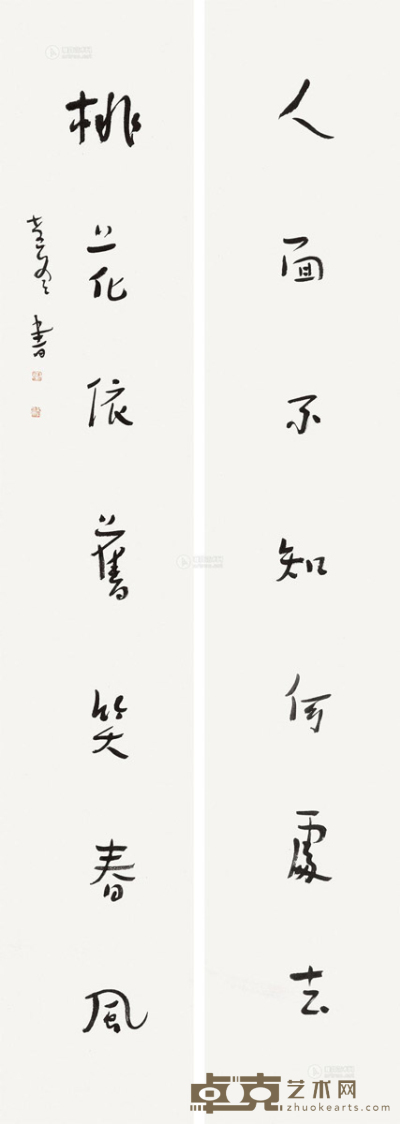 人面不知何處去
桃花依舊笑春風
書
卓克艺术网
zhuokearts.com